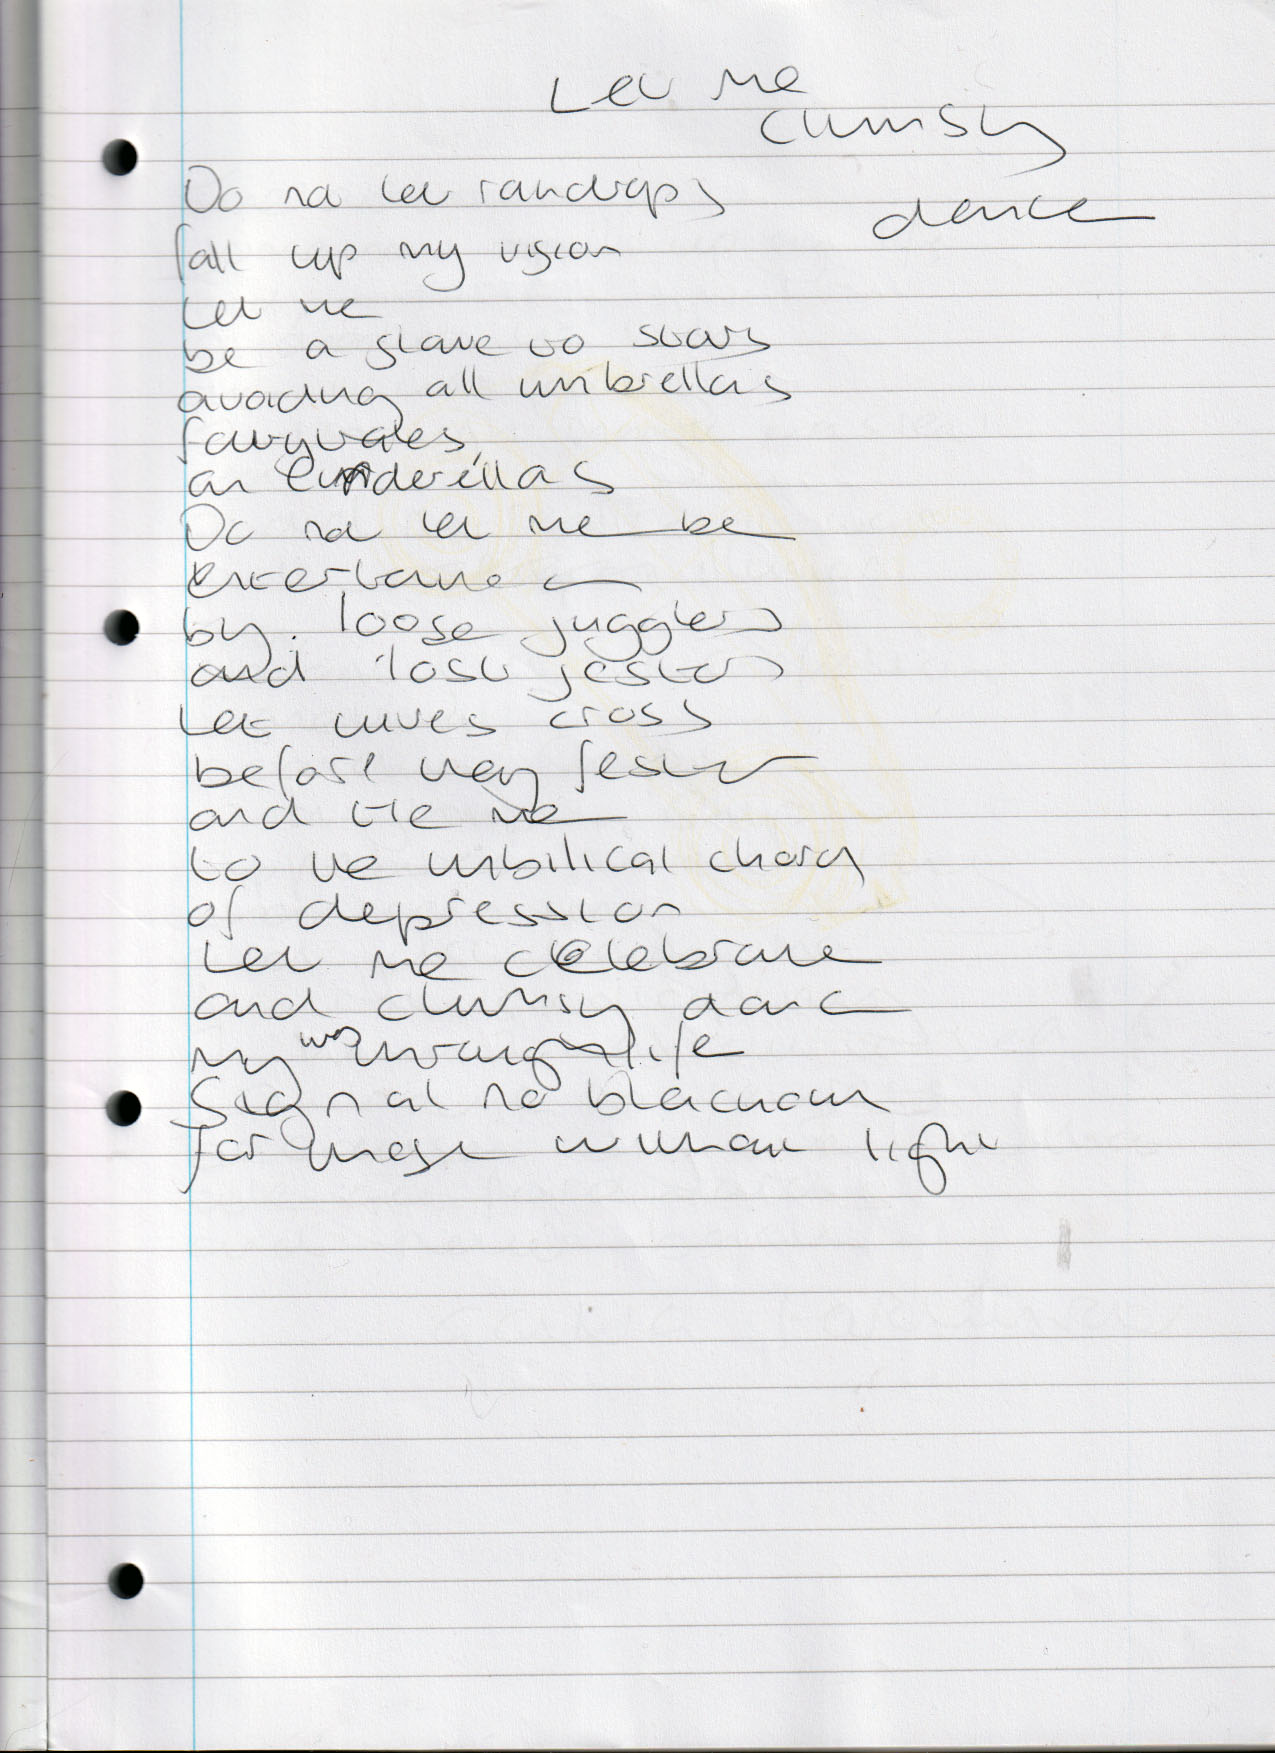 Let me
clumsy
dance
Do not let raindrops
fall up my vision
Let me
be a slave to stars
avoiding all umbrellas
fairytales,
an Cinderellas
Do not let me be
entertaine
by loose jugglers
and lost jesters
Let wives cross
before they fester
and tie me
to the umbilical chord
of depression
Let me celebrate
and clumsy dance
my way through life
Signal no blackout
for those without light